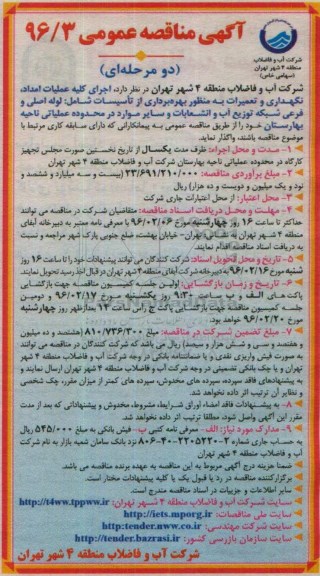 آگهی مناقصه عمومی ۹۶/۳
(دو مرحله‌ای)
شرکت آب و فاضلاب
منطقه ۴ شهر تهران
(سهامی خاص)
شرکت آب و فاضلاب منطقه ۴ شهر تهران در نظر دارد، اجرای کلیه عملیات امداد،
نگهداری و تعمیرات به منظور بهره‌برداری از تأسیسات شامل: لوله اصلی و
فرعی شبکه توزیع آب و انشعابات و سایر موارد در محدوده عملیاتی ناحیه
بهارستان خود را از طریق مناقصه عمومی به پیمانکارانی که دارای سابقه کاری مرتبط با
موضوع مناقصه باشند، واگذار نماید.
۱- مدت و محل اجراء: ظرف مدت یکسال از تاریخ نخستین صورت مجلس تجهیز
کارگاه در محدوده عملیاتی ناحیه بهارستان شرکت آب و فاضلاب منطقه ۴ شهر تهران
۲- مبلغ برآوردی مناقصه: ۲۳/۶۹۱/۲۱۰/۰۰۰ (بیست و سه میلیارد و ششصد و
نود و یک میلیون و دویست و ده هزار) ریال
۳- محل اعتبار: از محل اعتبارات جاری شرکت
۴- مهلت و محل دریافت اسناد مناقصه: متقاضیان شرکت در مناقصه می توانند
حداکثر تا ساعت ۱۶ روز چهارشنبه مورخ ۹۶/۰۲/۰۶ با معرفی نامه معتبر به دبیرخانه آبفای
منطقه ۴ شهر تهران به نشانی: تهران- خیابان بهشت ضلع جنوبی پارک شهر مراجعه و نسبت
به دریافت اسناد مناقصه اقدام نمایند.
۵- تاریخ و محل تحویل اسناد: شرکت کنندگان می توانند پیشنهادات خود را تا ساعت ۱۶ روز
شنبه مورخ ۹۶/۰۲/۱۶ به دبیرخانه شرکت آبفای منطقه ۴ شهر تهران در قبال اخذ رسید تحویل نمایند.
۶- تاریخ و زمان بازگشایی: اولین جلسه کمیسیون مناقصه جهت بازگشایی
پاکت های الف و ب ساعت ۹:۳۰ روز یکشنبه مورخ ۹۶/۰۲/۱۷ و دومین
جلسه کمیسیون مناقصه جهت بازگشایی پاکت ج راس ساعت ۱۴ بعدازظهر روز چهارشنبه
مورخ ۹۶/۰۲/۲۰ خواهد بود.
۷- مبلغ تضمین شرکت در مناقصه: مبلغ ۸۱۰/۷۳۶/۳۰۰ (هشتصد و ده میلیون و
هفتصد و سی و شش هزار و سیصد) ریال می باشد که شرکت کنندگان در مناقصه می توانند
به صورت فیش واریزی نقدی و یا ضمانتنامه بانکی در وجه شرکت آب و فاضلاب منطقه ۴ شهر
تهران و یا چک بانکی تضمینی در وجه شرکت آب و فاضلاب منطقه ۴ شهر تهران ارسال نمایند و
به پیشنهادهای فاقد سپرده، سپرده های مخدوش، سپرده های کمتر از میزان مقرر، چک شخصی
و نظایر آن ترتیب اثر داده نخواهد شد.
۸- به پیشنهادات فاقد امضاء اوراق اسناد، شرایط، مشروط، مخدوش و پیشنهاداتی که بعد از مدت
مقرر این آگهی واصل شود، مطلقا ترتیب اثر داده نخواهد شد.
۹- مدارک مورد نیاز: الف- معرفی نامه کتبی ب- فیش بانکی به مبلغ ۵۴۵/۰۰۰ ریال
به حساب جاری شماره ۲-۵۲۲۰-۲۲۰-۴۰-۸۰۶ نزد بانک سامان شعبه بازار به نام شرکت
آب و فاضلاب منطقه ۴ شهر تهران
ضمنا هزینه درج آگهی مربوط به این مناقصه به عهده برنده مناقصه می باشد.
برگزارکننده مناقصه در رد یا قبول یک یا کلیه پیشنهادات مختار است.
سایر اطلاعات و جزییات در اسناد مناقصه مندرج است.
سایت شرکت آب و فاضلاب منطقه ۴ شهر تهران: http://t4ww.tppww.ir
سایت ملی مناقصات: http://iets.mporg.ir
سایت شرکت مهندسی: http:tender.nww.co.ir
سایت سازمان بازرسی کشور: http://tender.bazrasi.ir
شرکت آب و فاضلاب منطقه ۴ شهر تهران